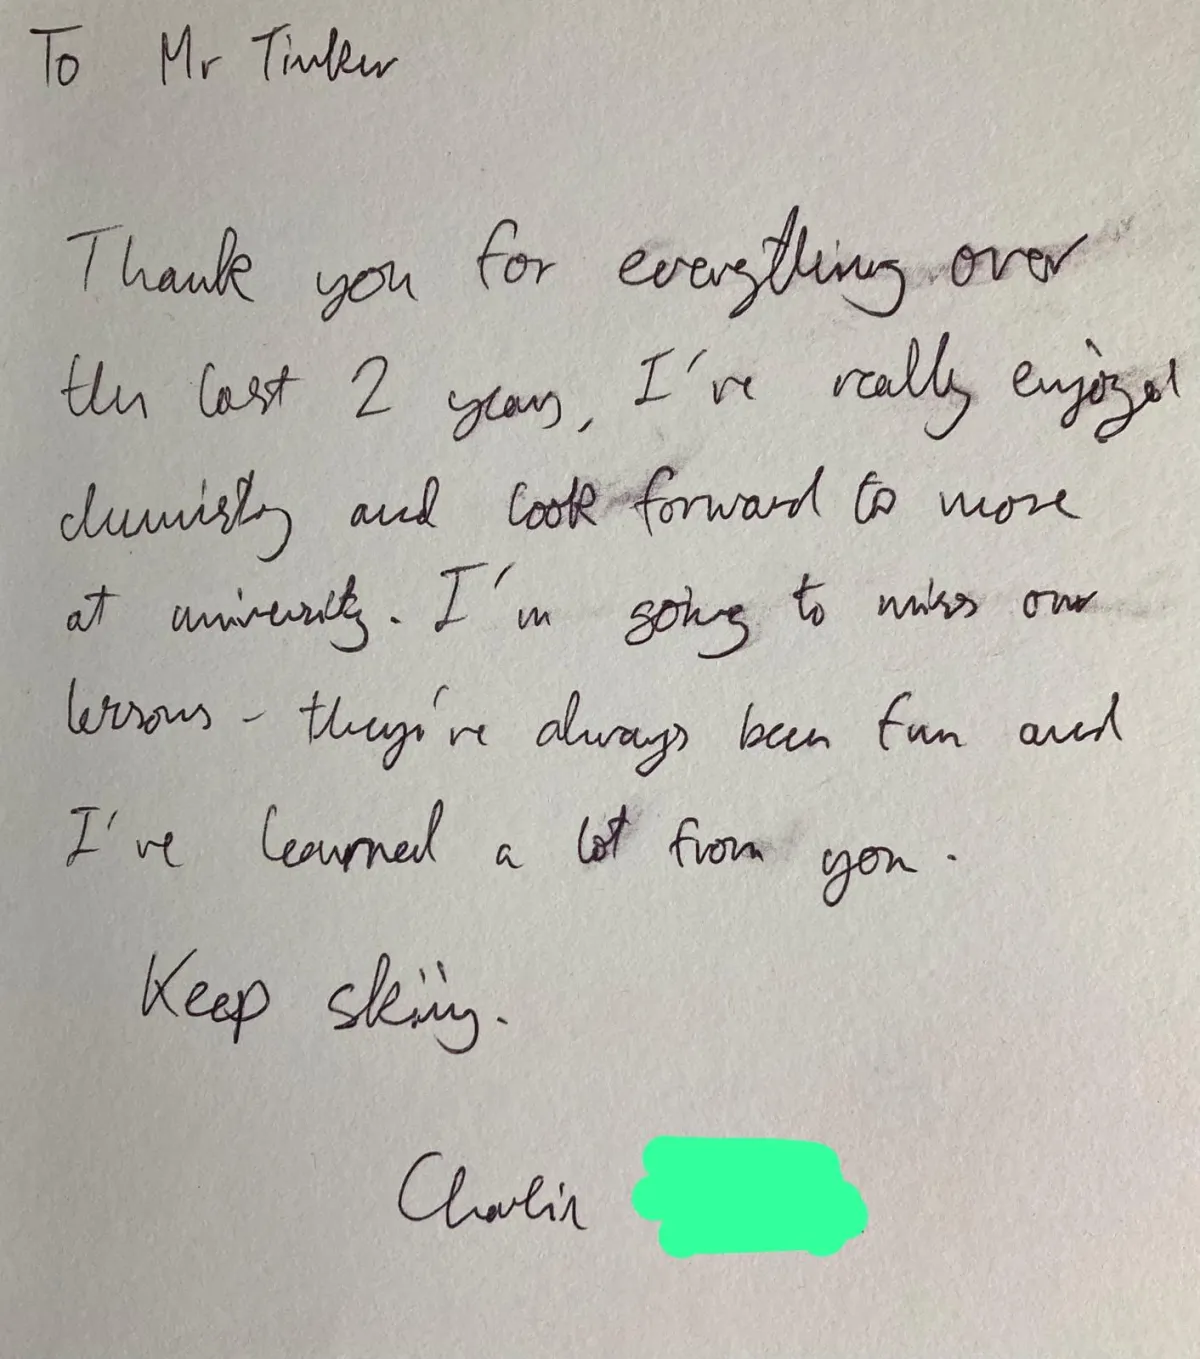 To Mr Tinker
Thank you for everything over
the last 2 years, I've really enjoyed
chemistry and look forward to more
at university. I'm going to miss our
lessons - they've always been fun and
I've learned a lot from you.
Keep skiing.
Charlie